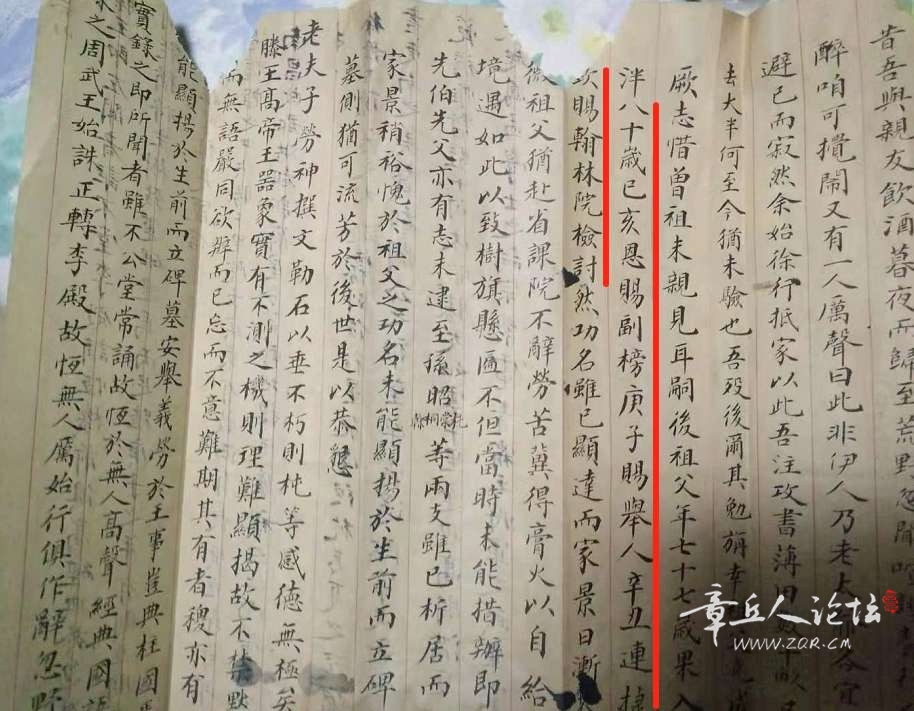 昔吾與親友飲酒暮夜而歸至荒野忽聞
醉咱可攪鬧又有一人厲聲曰此非伊人乃老太
避已而寂然余始徐行抵家以此吾注攻書薄田
去大半何至今猶未驗也吾歿後爾其勉旃幸
厥志惜曾祖未親見耳嗣後祖父年七十七歲果入
泮八十歲已亥恩賜副榜庚子賜舉人辛丑連捷
欽賜翰林院檢討然功名雖已顯達而家景日漸
微祖父猶赴省課院不辭勞苦冀得膏火以自給
境遇如此以致樹旗懸匾不但當時未能措辦即
先伯先父亦有志未逮至孫昭等兩支雖已析居而
家景稍裕愧於祖父之功名未能顯揚於生前而立碑
墓側猶可流芳於後世是以恭懇
老夫子勞神撰文勒石以垂不朽則杶等感德無極矣
滕王高帝王器象實有不測之機則理難顯揭故不禁默
而無語嚴同欲辦而已忘而不意難期其有者稷亦有
能顯揚於生前而立碑墓安舉義勞於王事豈與杜國
實錄之即所聞者雖不公堂常誦故恆於無人高聲 經典國語
之周武王始誅正轉李殿故恆無人厲始行俱作辭忽
章丘人论坛
WWW.ZQR.CM